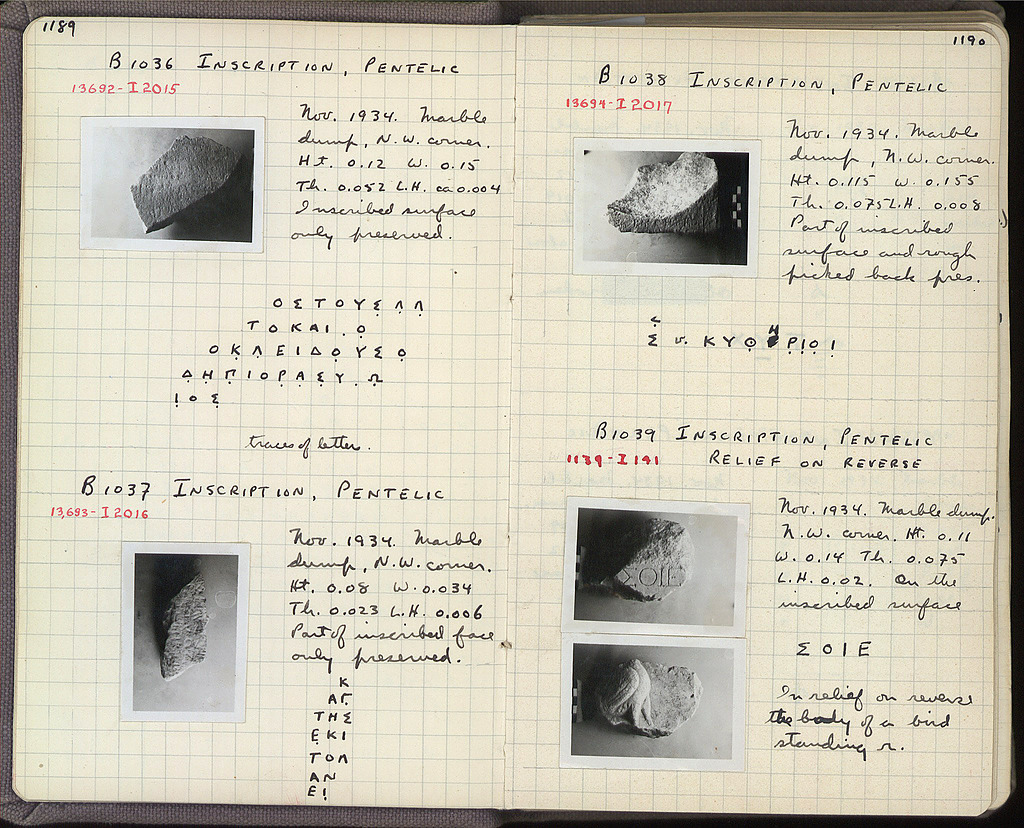 1189
B 1036 INSCRIPTION, PENTELIC
13692-I 2015
Nov. 1934. Marble
dump, N.W. corner.
Ht. 0.12 W. 0.15
Th. 0.052 L.H. ca 0.004
Inscribed surface
only preserved.
Ο Σ Τ Ο Υ Σ Λ Λ
Τ Ο Κ Α Ι . Ο
Ο Κ Λ Ε Ι Δ Ο Υ Σ Ο
Δ Η Π Ι Ο Ρ Α Σ Υ . Ω
Ι Ο Σ
traces of letter.
B 1037 INSCRIPTION, PENTELIC
13,693-I 2016
Nov. 1934. Marble
dump, N.W. corner.
Ht. 0.08 W. 0.034
Th. 0.023 L.H. 0.006
Part of inscribed face
only preserved.
Κ
ΑΓ
ΤΗΣ
ΕΚΙ
ΤΟΛ
ΑΝ
ΕΙ
1190
B 1038 INSCRIPTION, PENTELIC
13694-I 2017
Nov. 1934. Marble
dump, N.W. corner.
Ht. 0.115 W. 0.155
Th. 0.075 L.H. 0.008
Part of inscribed
surface and rough
picked back pres.
Σ v. Κ Υ Θ Η Ρ Ι Ο Ι
B 1039 INSCRIPTION, PENTELIC
1139-I 191 RELIEF ON REVERSE
Nov. 1934. Marble dump.
N.W. corner. Ht. 0.11
W. 0.14 Th. 0.075
L.H. 0.02. On the
inscribed surface
Σ Ο Ι Ε
In relief on reverse
the body of a bird
standing r.